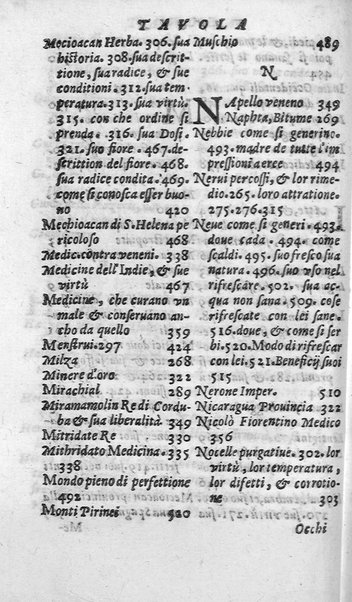 TAVOLA
Mecioacan Herba. 306. sua
historia. 308. sua descrit-
tione, sua radice, & sue
conditioni. 312. sua tem-
peratura. 313. sua virtù.
315. con che ordine si
prenda. 316. sua Dosi.
321. suo fiore 467. de-
scrittion del fiore. 468.
sua radice condita. 469.
come si conosca esser buo-
no 420
Mechioacan di S. Helena pe
ricoloso 468
Medic. contra veneni. 338
Medicine dell'Indie, & sue
virtù 467
Medicine, che curano vn
male & conseruano an-
cho da quello 359
Menstrui. 297 424
Milza 268
Minere d'oro 322
Mirachial 289
Miramamolin Re di Cordu-
ba & sua liberalità 349
Mitridate Re 330
Mithridato Medicina. 335
338
Mondo pieno di perfettione
492
Monti Pirinei 520
Muschio 489
N
NApello veneno 349
Naphta, Bitume 269
Nebbie come si generino.
493. madre de tutte l'im
pressioni aeree 494
Nerui percossi, & lor rime-
dio. 265. loro attratione.
275. 276. 315
Neue come si generi. 493.
doue cada. 494. come
scaldi. 495. suo fresco sua
natura. 496. suo vso nel
rifrescare. 502. sua ac-
qua non sana. 509. cose
rifrescate con lei sane.
516. doue, & come si ser
bi. 520. Modo di rifrescar
con lei. 521. Beneficij suoi
515
Nerone Imper. 510
Nicaragua Prouincia 322
Nicolò Fiorentino Medico
356
Nocelle purgatiue. 302. lor
virtù, lor temperatura,
lor difetti, & corrotio-
ne 303
Occhi